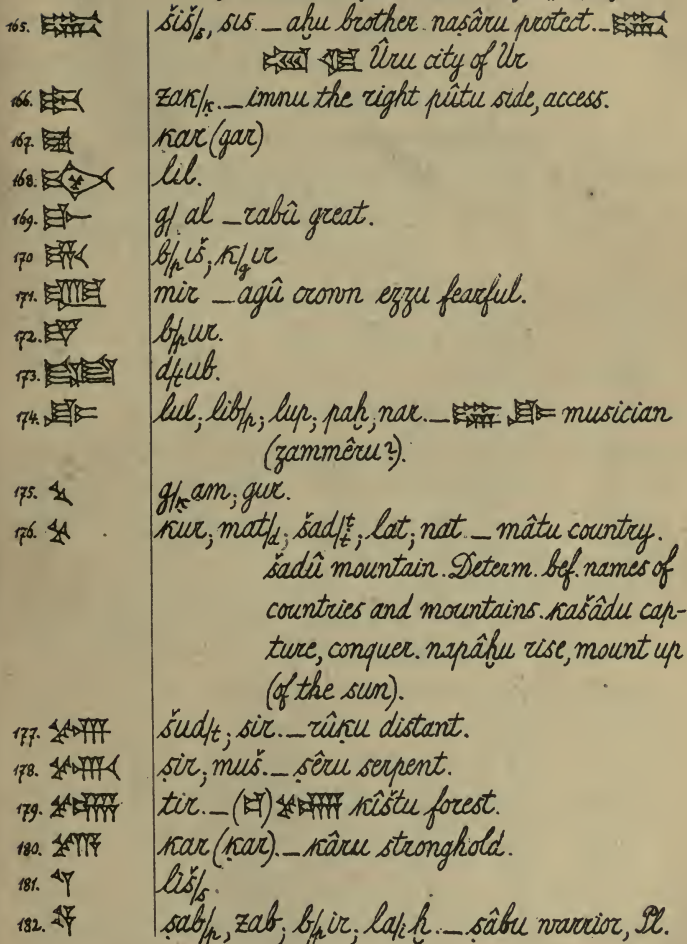 165. šiš/s, sis _ aḫu brother naṣâru protect _
Ûru city of Ur
166. zak/ḳ. _ imnu the right pûtu side, access.
167. ḳar (gar)
168. lil.
169. g/ al _ rabû great.
170 b/p iš; k/g ir
171. mir _ agû crown ezzu fearful.
172. b/p ur.
173. d/ṭ ub.
174. lul; lib/p; lup; paḫ; nar. _ musician
(zammêru?).
175. g/ḳ am; gur.
176. kur; mat/d; šad/t/ṭ; lat; nat _ mâtu country.
šadû mountain. Determ. bef. names of
countries and mountains. kašâdu cap-
ture, conquer. napâḫu rise, mount up
(of the sun).
177. šud/t; sir. _ rûḳu distant.
178. ṣir; muš. _ ṣêru serpent.
179. tir. _ ( ) kîštu forest.
180. kar (ḳar). _ kâru stronghold.
181. liš/s.
182. ṣab/p, zab; b/p ir; la/i ḫ. _ ṣâbu warrior, Pl.